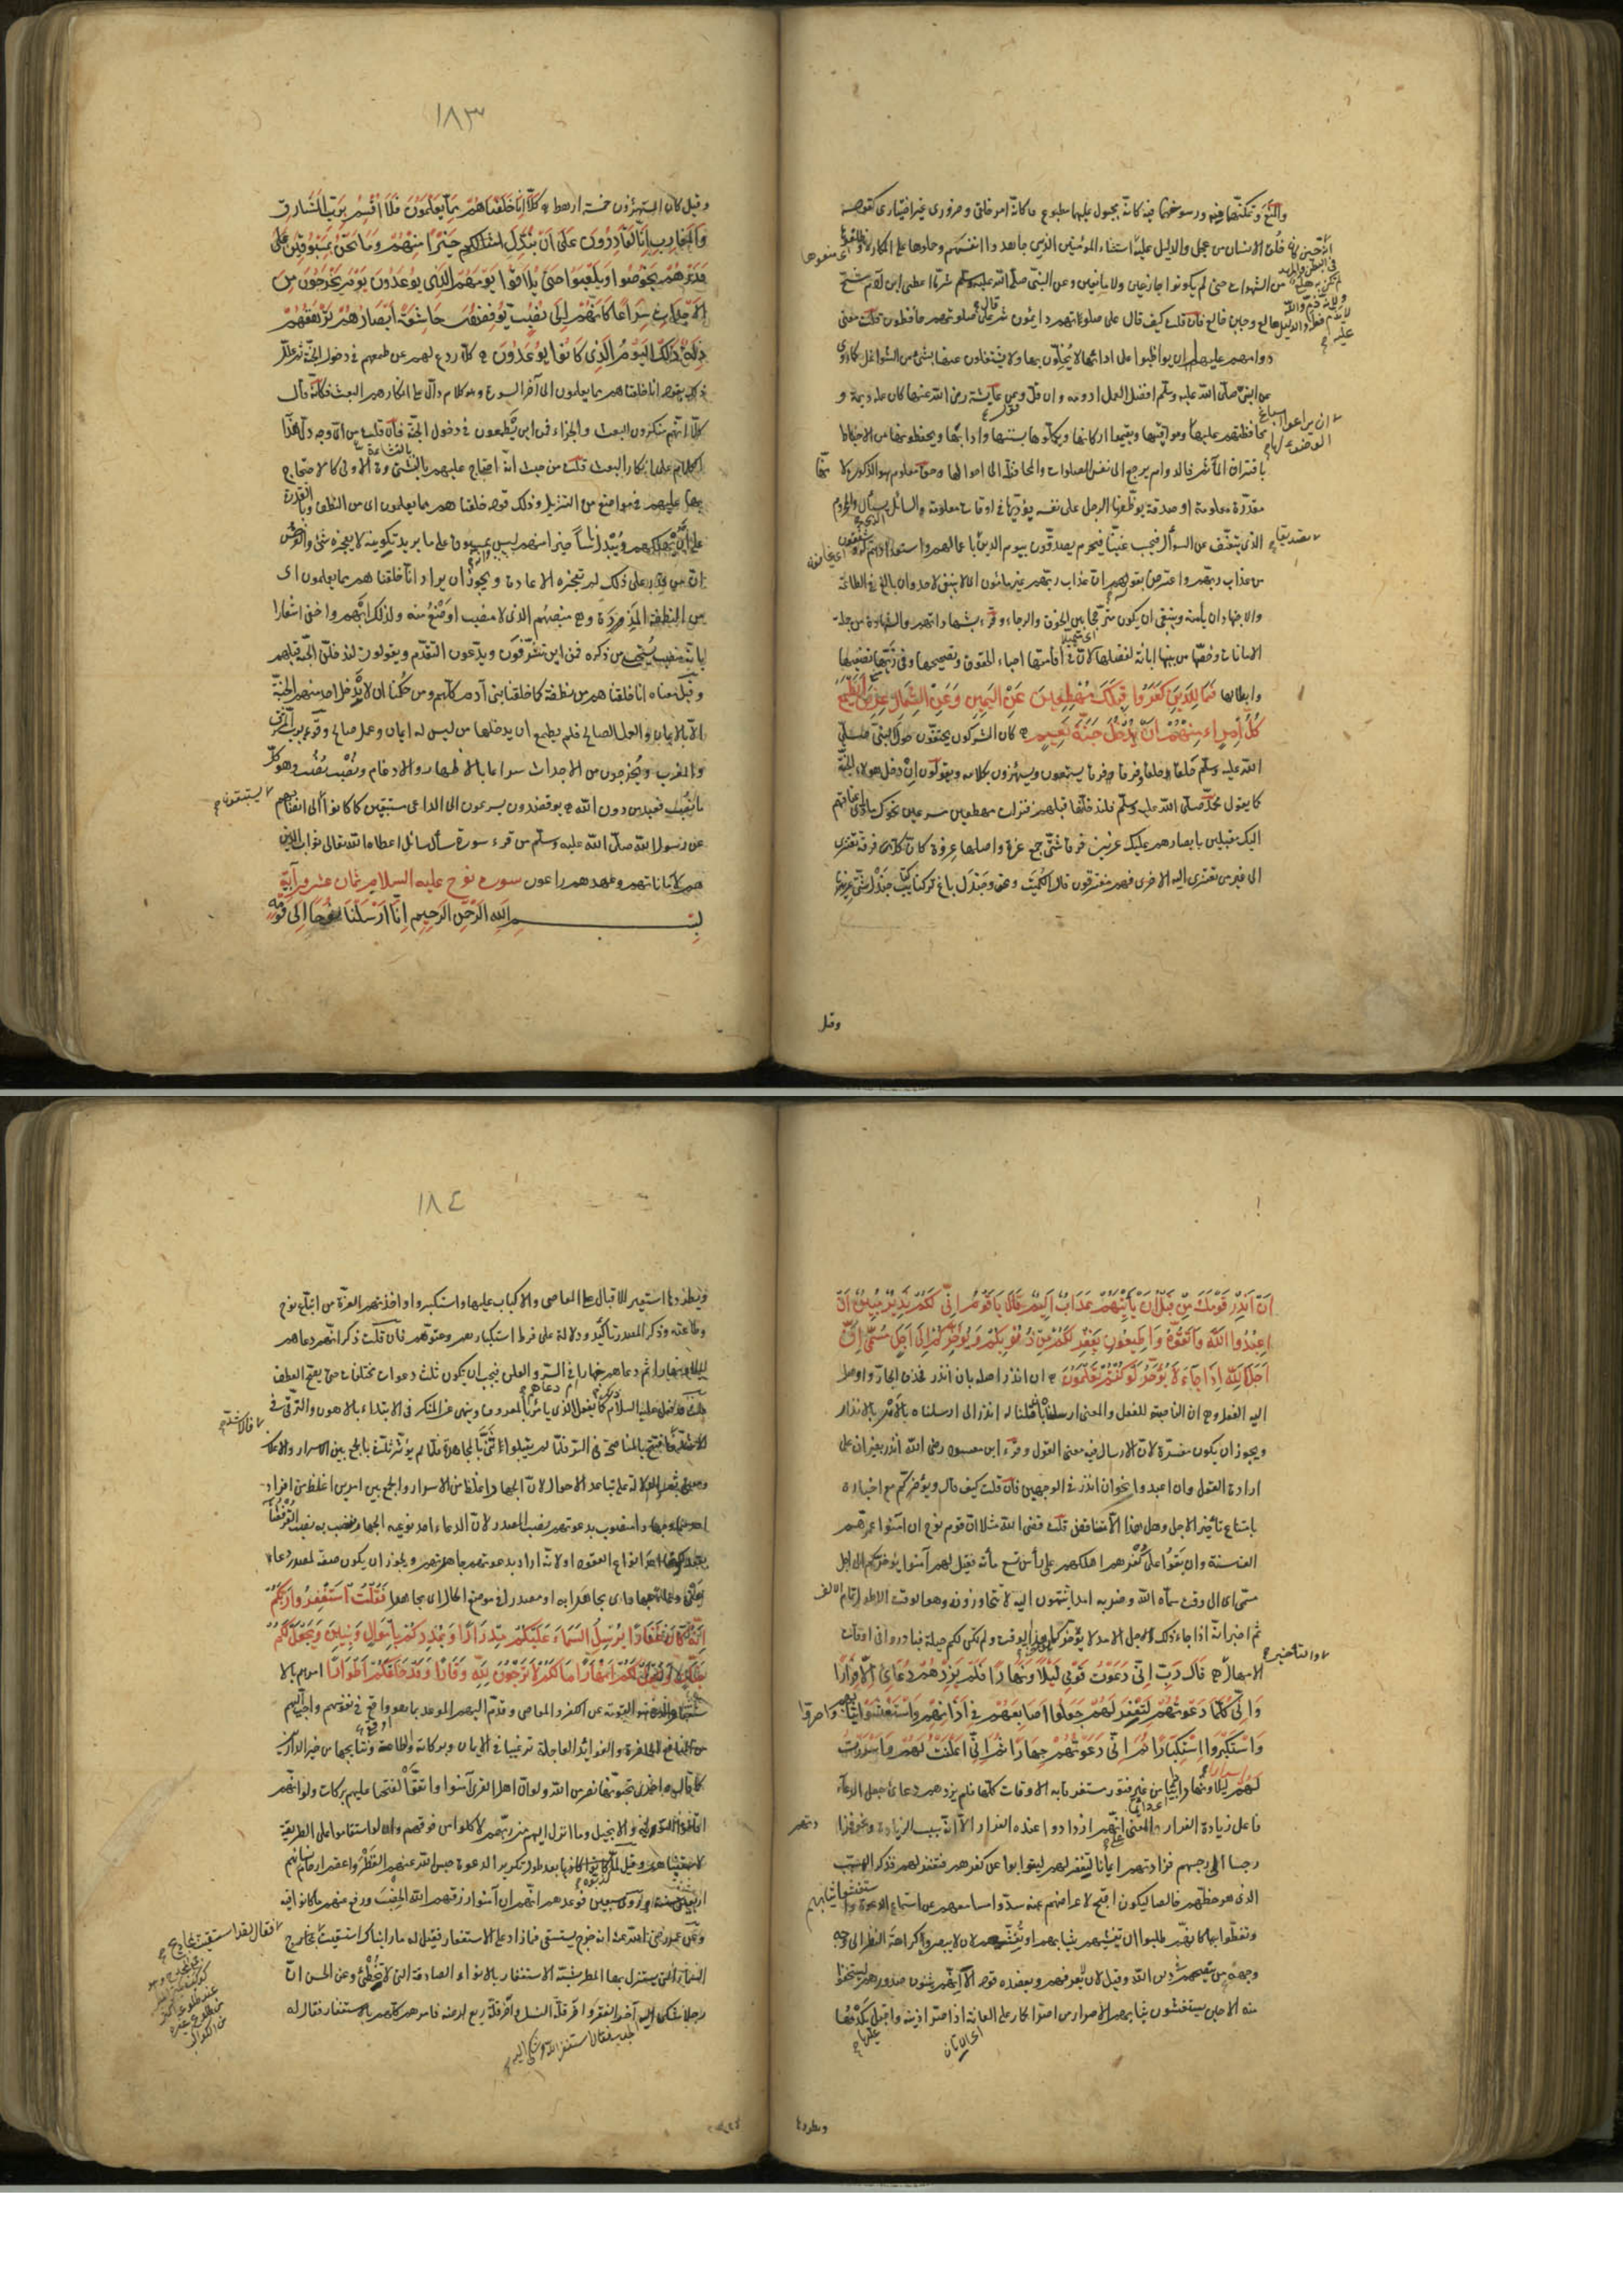 والمنع وتمكنهما فيه ورسوخهما فيه كانه مجبول عليهما مطبوع وكانه امر خلقى وضرورى غير اختيارى كقوله
خلق الانسان من عجل والدليل عليه استثناء المؤمنين الذين جاهدوا انفسهم وحملوها على المكاره
من الشهوات حتى لم يكونوا جازعين ولا مانعين وعن النبى صلى الله عليه وسلم شر ما اعطى ابن آدم شح
هالع وجبن خالع فان قلت كيف قال على صلوتهم دائمون ثم على صلوتهم يحافظون قلت معنى
دوامهم عليها ان يواظبوا على ادائها لا يخلون بها ولا يشتغلون عنها بشئ من الشواغل كما روى
عن النبى صلى الله عليه وسلم افضل العمل ادومه وان قل وعن عايشة رضى الله عنها كان عمله ديمة و
محافظتهم عليها ومواقيتها ويقيموا اركانها ويكملوها بسننها وادابها ويحفظونها من الاحباط
باقتراف المآثم فالدوام يرجع الى نفس الصلوات والمحافظة الى احوالها وحق معلوم هو الزكوة لانها
مقدرة معلومة او صدقة يوظفها الرجل على نفسه يؤديها فى اوقات معلومة والسائل الذى يسأل والمحروم
الذى يتعفف عن السؤال فيحسب غنيا فيحرم يصدقون بيوم الدين باعمالهم واستعدادهم
من عذاب ربهم واعترض بقوله ان عذاب ربهم غير مأمون اى لا ينبغى لاحد وان بالغ فى الطاعة
والاجتهاد ان يأمنه وينبغى ان يكون مترجحا بين الخوف والرجاء وقرئ بشهادتهم والشهادة من جملة
الامانات وخصها من بينها ابانة لفضلها لان فى اقامتها احياء الحقوق وتصحيحها وفى زيها تضييعها
وابطالها فمال الذين كفروا قبلك مهطعين عن اليمين وعن الشمال عزين ايطمع
كل امرئ منهم ان يدخل جنة نعيم كان المشركون يحتفون حول النبى صلى
الله عليه وسلم حلقا حلقا وفرقا فرقا يستمعون ويستهزؤن بكلامه ويقولون ان دخل هولاء الجنة
كما يقول محمد صلى الله عليه وسلم فلندخلنها قبلهم فنزلت مهطعين مسرعين نحوك مادى اعناقهم
اليك مقبلين بابصارهم عليك عزين فرقا شتى جمع عزة واصلها عزوة كان كل فرقة تعتزى
الى غير من تعتزى اليه الاخرى فهم مفترقون قال الكميت ونحن وجندل باغ تركنا كتائب جندل شتى عزينا
وقيل
١٨٣
وقيل كان المستهزؤن خمسة ارهط كلا انا خلقناهم مما يعلمون فلا اقسم برب المشارق
والمغارب انا لقادرون على ان نبدل امثالكم خيرا منهم وما نحن بمسبوقين على
فذرهم يخوضوا ويلعبوا حتى يلاقوا يومهم الذى يوعدون يوم يخرجون من
الاجداث سراعا كانهم الى نصب يوفضون خاشعة ابصارهم ترهقهم
ذلة ذلك اليوم الذى كانوا يوعدون كلا ردع لهم عن طمعهم فى دخول الجنة ثم علل
ذلك بقوله انا خلقناهم مما يعلمون الى آخر السورة وهو كلام دال على انكارهم البعث فكانه قال
كلا انهم منكرون البعث والجزاء فمن اين يطمعون فى دخول الجنة فان قلت من اى وجه دل هذا
الكلام على انكار البعث قلت من حيث انه احتجاج عليهم بالنشأة الاولى كالاحتجاج
بها عليهم فى مواضع من التنزيل وذلك قوله خلقناهم مما يعلمون اى من النطف وبالقدرة
على ان يهلكهم ويبدل ناسا خيرا منهم ليس بمسبوق على ما يريد تكوينه لا يعجزه شئ والغرض
ان من قدر على ذلك لم تعجزه الاعادة ويجوز ان يراد انا خلقناهم مما يعلمون اى
من النطفة المذرة وهى منصبهم الذى لا منصب اوضع منه ولذلك ابهم واخفى اشعارا
بانه منصب يستحيى من ذكره فمن اين يتشرفون ويدعون التقدم ويقولون لندخلن الجنة قبلهم
وقيل معناه انا خلقناهم من نطفة كما خلقنا بنى آدم كلهم ومن حكمنا ان لا يدخل احد منهم الجنة
الا بالايمان والعمل الصالح فلم يطمع ان يدخلها من ليس له ايمان وعمل صالح وقرئ برب المشرق
والمغرب ويخرجون من الاجداث سراعا بالاظهار والادغام ونصب نصب وهو كل
ما نصب فعبد من دون الله يوفضون يسرعون الى الداعى مستبقين كما كانوا الى انصابهم
عن رسول الله صلى الله عليه وسلم من قرء سورة سأل سائل اعطاه الله تعالى ثواب الذين
هم لاماناتهم وعهدهم راعون سورة نوح عليه السلام ثمان عشرون آية
بسم الله الرحمن الرحيم انا ارسلنا نوحا الى قومه
ان انذر قومك من قبل ان يأتيهم عذاب اليم قال يا قوم انى لكم نذير مبين ان
اعبدوا الله واتقوه واطيعون يغفر لكم من ذنوبكم ويؤخركم الى اجل مسمى ان
اجل الله اذا جاء لا يؤخر لو كنتم تعلمون ان انذر اصله بان انذر فحذف الجار واوصل
اليه الفعل وهى ان الناصبة للفعل والمعنى ارسلناه بان قلنا له انذر اى ارسلناه بالامر بالانذار
ويجوز ان يكون مفسرة لان الارسال فيه معنى القول وقرء ابن مسعود رضى الله انذر بغير ان على
ارادة القول وان اعبدوا نحو ان انذر فى الوجهين فان قلت كيف قال ويؤخركم مع اخباره
بامتناع تأخير الاجل وهل هذا الا تناقض قلت قضى الله مثلا ان قوم نوح ان امنوا عمرهم
الف سنة وان بقوا على كفرهم اهلكهم على رأس تسع مأئة فقيل لهم آمنوا يؤخركم الى اجل
مسمى اى الى وقت سماه الله وضربه امدا تنتهون اليه لا تتجاوزونه وهو الوقت الاطول تمام الالف
ثم اخبر انه اذا جاء ذلك الاجل الامد لا يؤخر كما يؤخر هذا الوقت ولم تكن لكم حيلة فبادروا فى اوقات
الامهال قال رب انى دعوت قومى ليلا ونهارا فلم يزدهم دعائى الا فرارا
وانى كلما دعوتهم لتغفر لهم جعلوا اصابعهم فى اذانهم واستغشوا ثيابهم واصروا
واستكبروا استكبارا ثم انى دعوتهم جهارا ثم انى اعلنت لهم واسررت
لهم اسرارا ليلا ونهارا دائبا من غير فتور مستغرقا به الاوقات كلها فلم يزدهم دعائى جعل الدعاء
فاعل زيادة الفرار والمعنى انهم ازدادوا عنده الفرار لانه سبب الزيادة ونحوه فزادتهم
رجسا الى رجسهم فزادتهم ايمانا لتغفر لهم ليتوبوا عن كفرهم فتغفر لهم فذكر المسبب
الذى هو حظهم خالصا ليكون اقبح لاعراضهم عنه سدوا مسامعهم عن استماع الدعوة واستغشوا ثيابهم
وتغطوا بها كانهم طلبوا ان تغشيهم ثيابهم او تغشيهم لان لا يبصروا كراهة النظر الى وجه
وجهه من ينصحهم فى دين الله وقيل لان لا يعرفهم ويعضده قوله الا انهم يثنون صدورهم ليستخفوا
منه الا حين يستغشون ثيابهم الاصرار من اصر الحمار على العانة اذا صر اذنيه واقبل يكدمها
ويطردها
١٨٤
ويطردها استعير للاقبال على المعاصى والاكباب عليها واستكبروا واخذتهم العزة من اتباع نوح
وطاعته وذكر المصدر تأكيد ودلالة على فرط استكبارهم وعتوهم فان قلت ذكر انه دعاهم
ليلا ونهارا ثم دعاهم جهارا فى السر والعلن فيجب ان يكون ثلث دعوات مختلفات حتى يصح العطف
قلت قد فعل عليه السلام كما يفعل الذى يأمر بالمعروف وينهى عن المنكر فى الابتداء بالاهون والترقى فى
الاشد فافتتح بالمناصحة فى السر فلما لم يقبلوا ثنى بالمجاهرة فلما لم يؤثر ثلث بالجمع بين الاسرار والاعلان
ومعنى ثم الدلالة على تباعد الاحوال لان الجهار اغلظ من الاسرار والجمع بين الامرين اغلظ من افراد
احدهما وجهارا منصوب بدعوتهم نصب المصدر لان الدعاء احد نوعيه الجهار فنصب به نصب القرفصا
بقعد لكونها احد انواع القعود او لانه اراد بدعوتهم جاهرتهم ويجوز ان يكون صفة لمصدر دعا
بمعنى دعاء جهارا اى مجاهرا به او مصدر فى موضع الحال اى مجاهرا فقلت استغفروا ربكم
انه كان غفارا يرسل السماء عليكم مدرارا ويمددكم باموال وبنين ويجعل لكم
جنات ويجعل لكم انهارا ما لكم لا ترجون لله وقارا وقد خلقكم اطوارا امرهم بالا
ستغفار الذى هو التوبة عن الكفر والمعاصى وقدم اليهم الموعد بما هو اوقع فى نفوسهم واحب اليهم
من المنافع الحاضرة والفوائد العاجلة ترغيبا فى الايمان وبركاته والطاعة ونتايجها من خير الدارين
كما قال واخرى تحبونها نصر من الله ولو ان اهل القرى آمنوا واتقوا لفتحنا عليهم بركات ولو انهم
اقاموا التورية والانجيل وما انزل اليهم من ربهم لاكلوا من فوقهم وان لو استقاموا على الطريقة
لاسقيناهم وقيل لما كذبوه بعد طول تكرير الدعوة حبس الله عنهم القطر واعقم ارحام نسائهم
اربعين سنة وروى سبعين فوعدهم انهم ان آمنوا رزقهم الله الخصب ورفع عنهم ما كانوا فيه
وعن عمر رضى الله عنه انه خرج يستسقى فمازاد على الاستغفار فقيل له ما رايناك استسقيت بمجاديح
السماء التى يستنزل بها المطر شبه الاستغفار بالانواء الصادقة التى لا تخطئ وعن الحسن ان
رجلا شكى اليه آخر الفقر وآخر قلة النسل وآخر قلة ريع ارضه فامرهم كلهم بالاستغفار فقال له